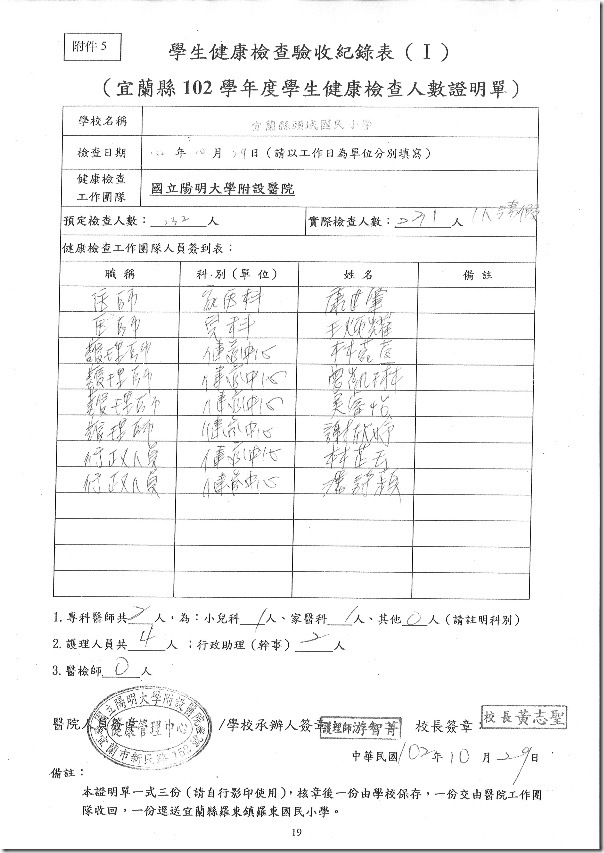 附件 5
學生健康檢查驗收紀錄表（Ⅰ）
（宜蘭縣 102 學年度學生健康檢查人數證明單）
學校名稱 宜蘭縣頭城國民小學
檢查日期 102 年 10 月 29 日（請以工作日為單位分別填寫）
健康檢查
工作團隊 國立陽明大學附設醫院
預定檢查人數： 232 人 實際檢查人數： 231 人 1人請假
健康檢查工作團隊人員簽到表：
職稱 科別(單位) 姓名 備註
醫師 家醫科
醫師 兒科 王炳耀
護理師 健管中心
護理師 健管中心
護理師 健管中心
護理師 健管中心
行政人員 健管中心
行政人員 健管中心
1.專科醫師共 2 人，為：小兒科 1 人、家醫科 1 人、其他 0 人（請註明科別）
2.護理人員共 4 人 ；行政助理(幹事) 2 人
3.醫檢師 0 人
醫院人員簽章 /學校承辦人簽章 護理師游智菁 校長簽章： 校長黃志聖
國立陽明大學附設醫院
健康管理中心
宜蘭市新民路
中華民國 102 年 10 月 29 日
備註：
本證明單一式三份(請自行影印使用)，核章後一份由學校保存，一份交由醫院工作團
隊收回，一份逕送宜蘭縣羅東鎮羅東國民小學。
19